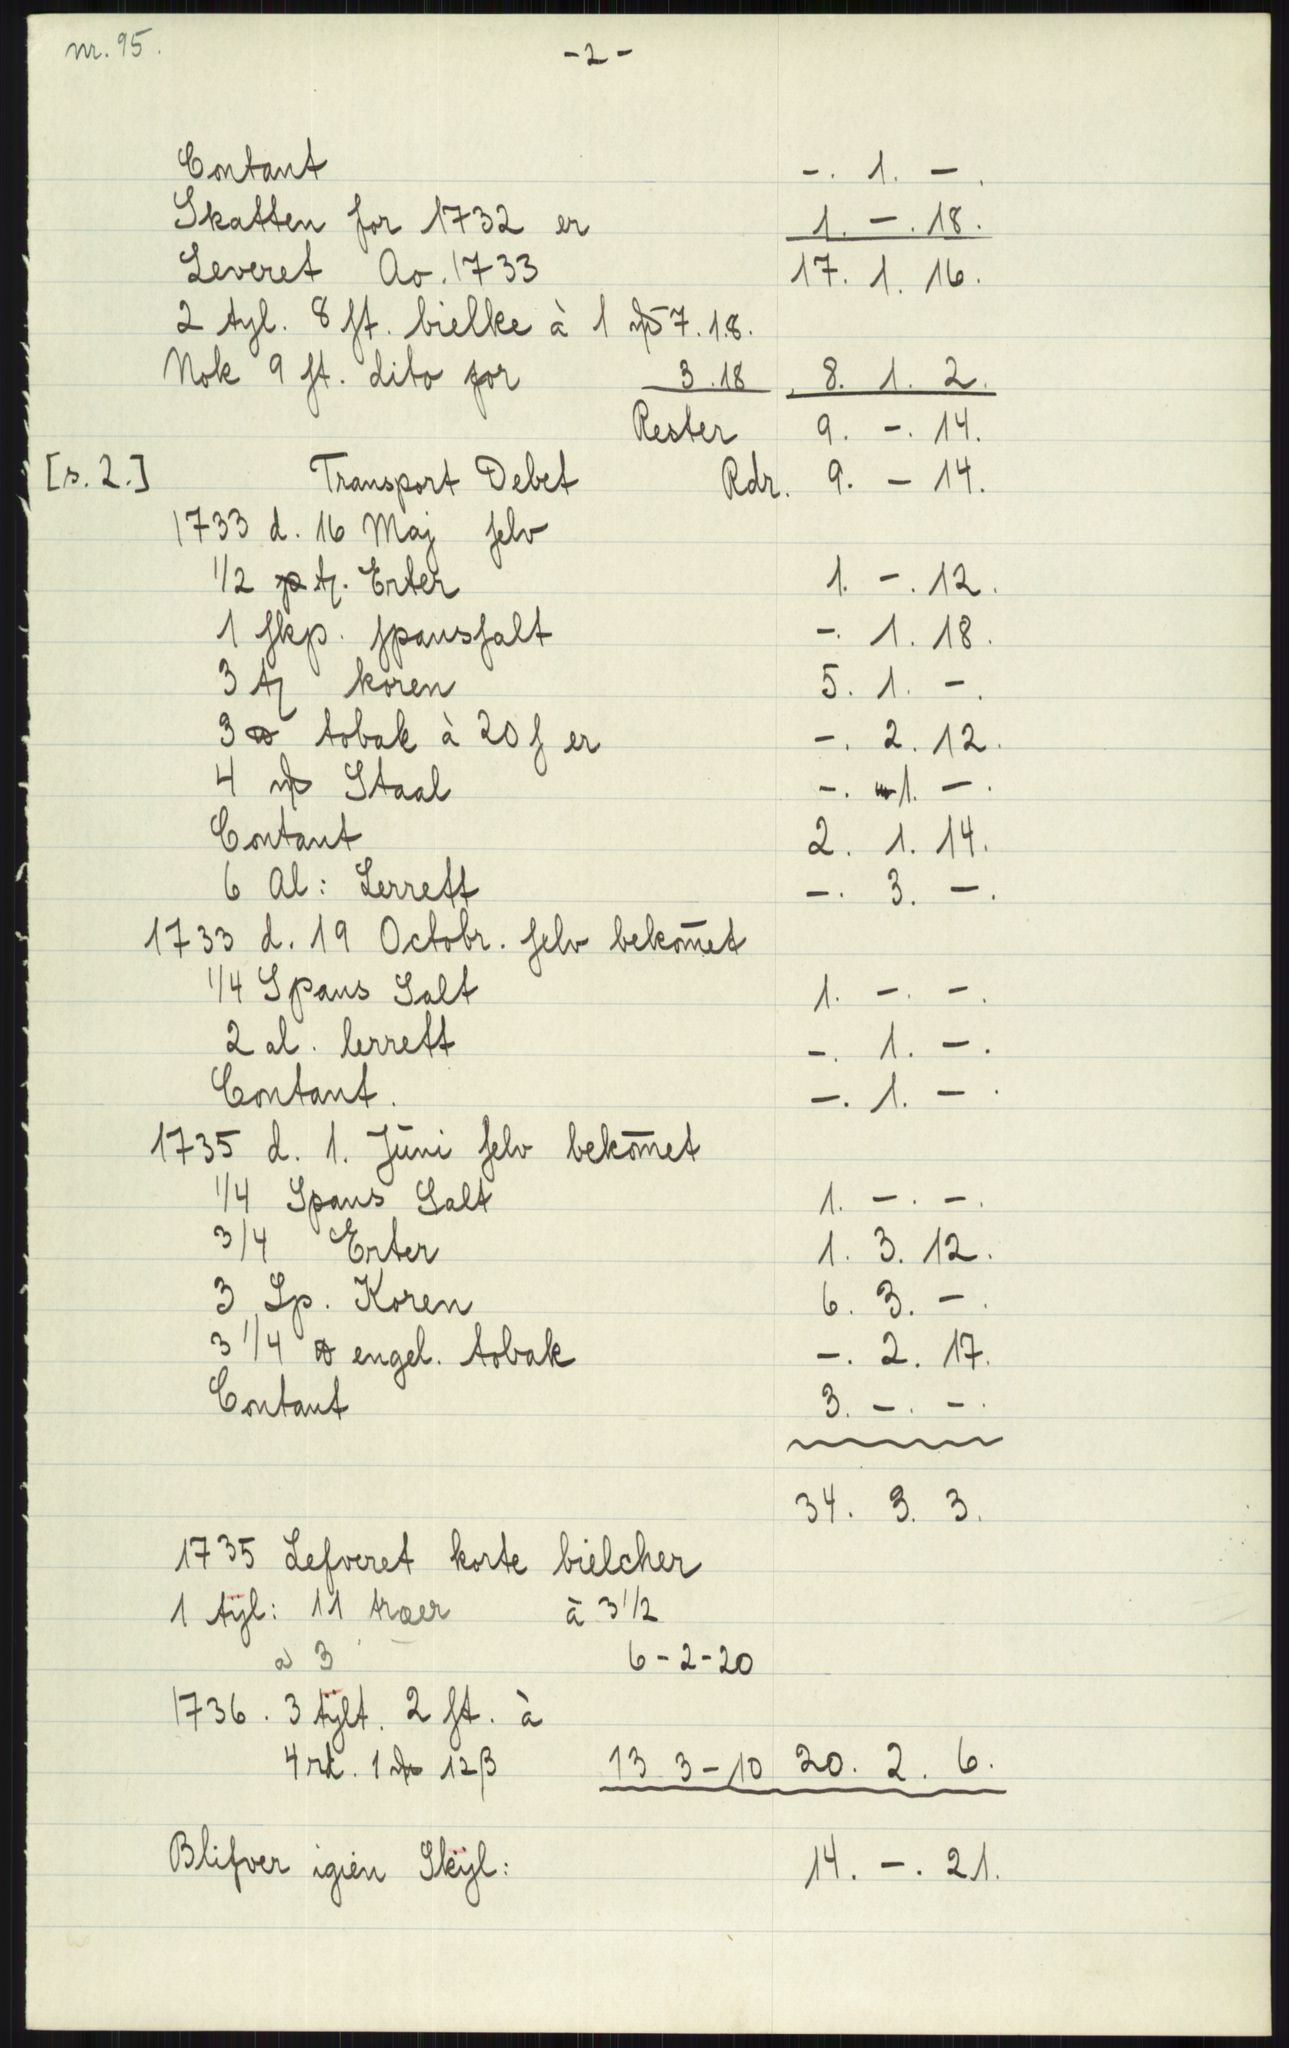 nr. 95.
- 2 -
Contant -. 1. -.
Skatten for 1732 er 1. -. 18.
Leveret Ao. 1733 17. 1. 16.
2 tyl. 8 st. bielke à 1 7. 18.
Nok 9 st. dito for 3. 18 8. 1. 2.
Rester 9. -. 14.
[s. 2.] Transport Debet Rdr. 9. - 14.
1733 d. 16 Maj selv
1/2 tz. Erter 1. -. 12.
1 skp. spanssalt -. 1. 18.
3 tz koren 5. 1. -.
3 ℔ tobak à 20 s er -. 2. 12.
4 Staal -. 1. -.
Contant 2. 1. 14.
6 Al: Lerrett -. 3. -.
1733 d. 19 Octobr. selv bekom̄et
1/4 Spans Salt 1. -. -.
2 al. lerrett -. 1. -.
Contant. -. 1. -.
1735 d. 1. Juni selv bekom̄et
1/4 Spans Salt 1. -. -.
3/4 Erter 1. 3. 12.
3 Sp. Koren 6. 3. -.
3 1/4 ℔ engel. tobak -. 2. 17.
Contant 3. -. -.
34. 3. 3.
1735 Lefveret korte bielcher
1 tÿl: 11 træer à 3 1/2
a 3 6-2-20
1736. 3 tÿlt. 2 st. à
4 rd. 1 12β 13 3-10 20. 2. 6.
Blifver igien Skÿl: 14. -. 21.